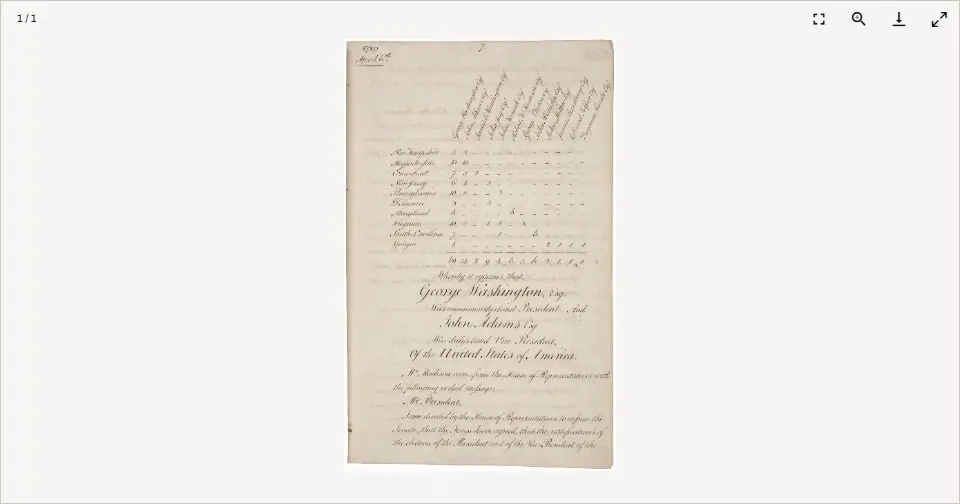 1 / 1
1789
April 6th
7
George Washington Esq
John Adams Esq
Samuel Huntington Esq
John Jay Esq
John Hancock Esq
Robert H. Harrison Esq
George Clinton Esq
John Rutledge Esq
John Milton Esq
James Armstrong Esq
Edward Telfair Esq
Benjamin Lincoln Esq
New Hampshire 5 5 - - - - - - - - - -
Massachusetts 10 10 - - - - - - - - - -
Connecticut 7 5 2 - - - - - - - - -
New Jersey 6 1 - 5 - - - - - - - -
Pennsylvania 10 8 - - 2 - - - - - - -
Delaware 3 - - 3 - - - - - - - -
Maryland 6 - - - - 6 - - - - - -
Virginia 10 5 - 1 1 - 3 - - - - -
South Carolina 7 - - - 1 - - 6 - - - -
Georgia 5 - - - - - - - 2 1 1 1
69 34 2 9 4 6 3 6 2 1 1 1
Whereby it appears, that
George Washington, Esq.
Was unanimously elected President. And
John Adams Esq
Was duly elected Vice President,
Of the United States of America.
Mr. Madison came from the House of Representatives with
the following verbal message.
Mr. President,
I am directed by the House of Representatives to inform the
Senate, that the House have agreed, that the notifications of
the election of the President and of the Vice President of the